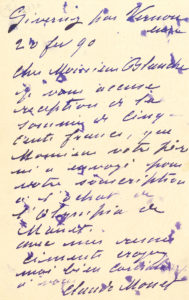 Giverny par Vernon
Eure
22 fev 90
Cher Monsieur Blanche
je vous accuse
reception de la
somme de cinq
cents francs, que
Monsieur votre père
m'a envoyé pour
votre souscription
à l'achat de
l'Olympia de
Manet.
avec mes remer
ciements croyez
moi bien cordialement
à vous
Claude Monet